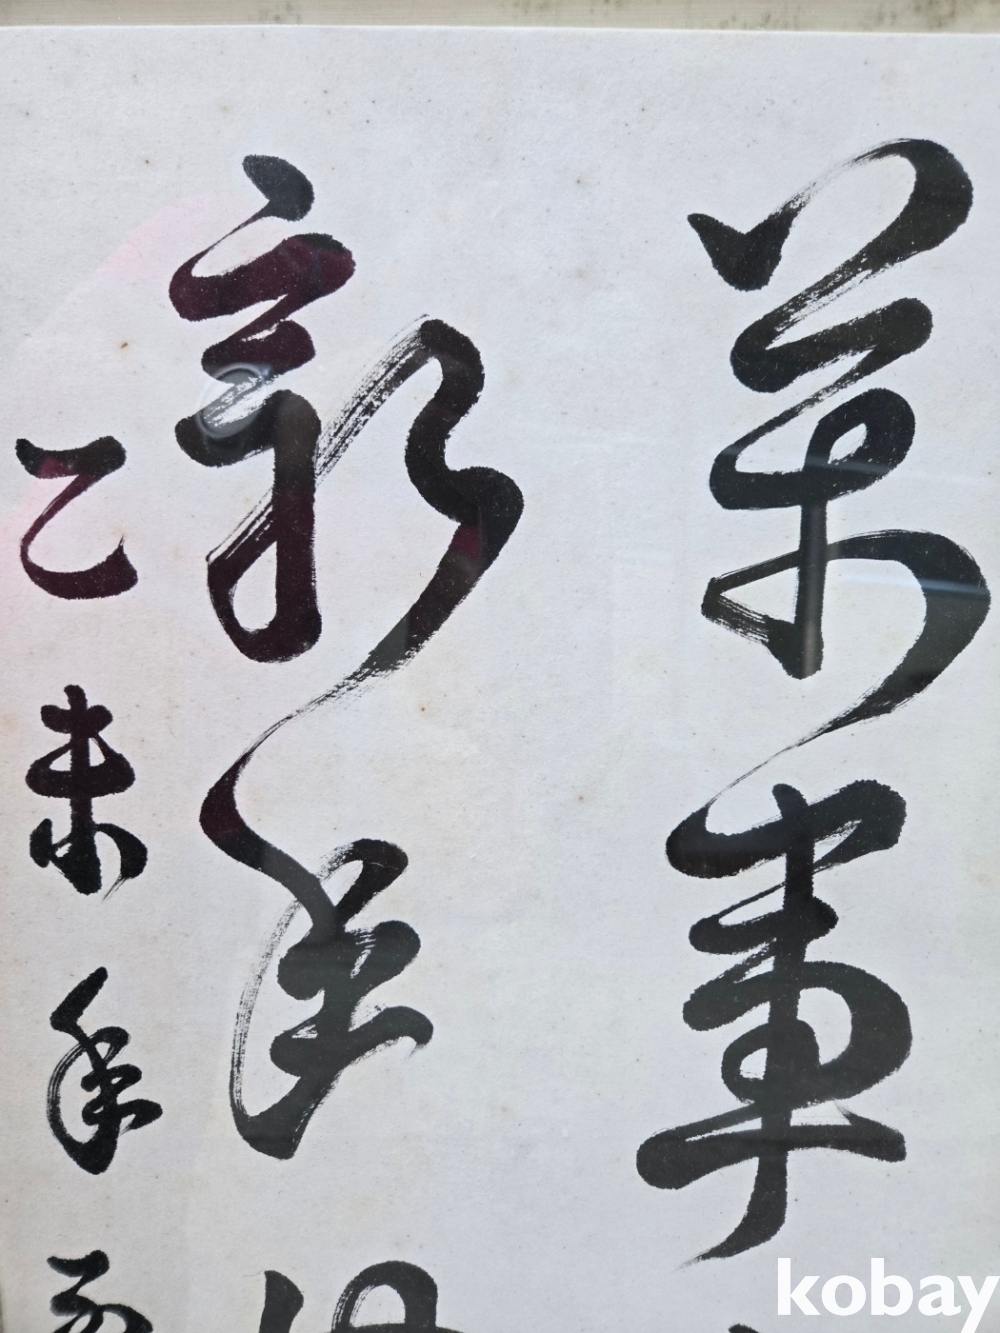 萬軍
新年
乙未年
kobay